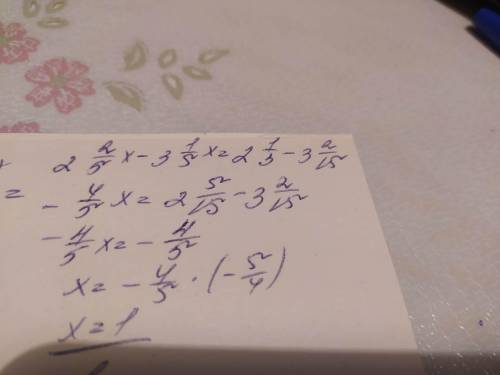 2 2/5 x - 3 1/5 x = 2 1/3 - 3 2/15
=
- 4/5 x = 2 5/15 - 3 2/15
- 4/5 x = - 4/5
x = - 4/5 · (- 5/4)
x = 1